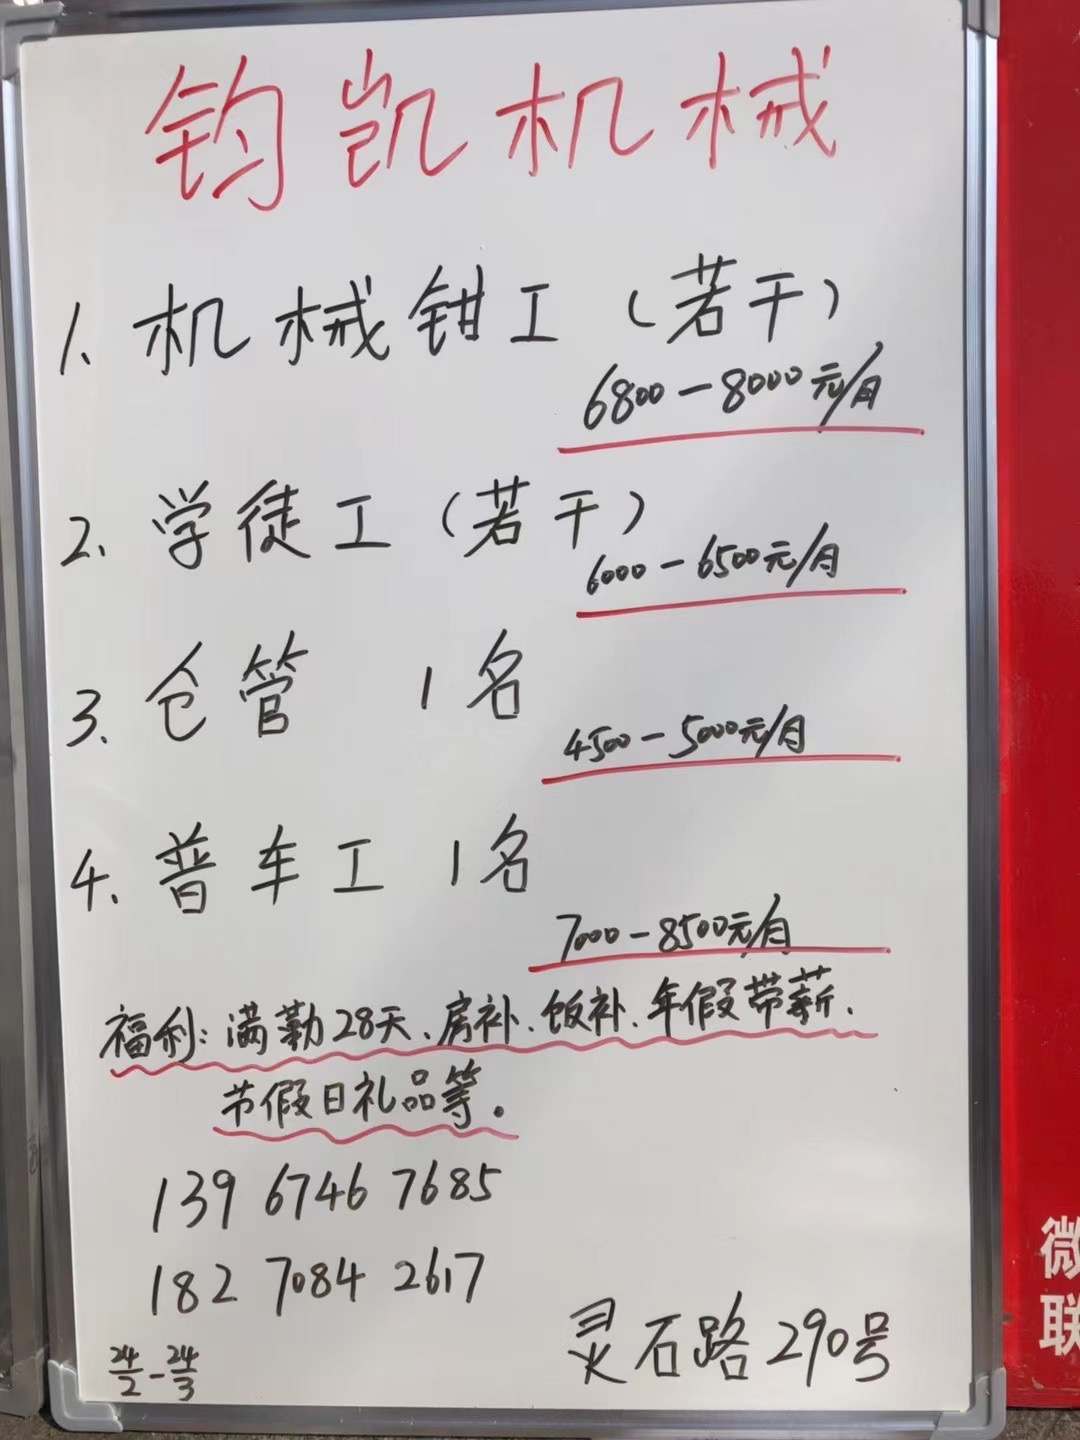 钧凯机械
1、机械钳工（若干）
6800-8000元/月
2、学徒工（若干）
6000-6500元/月
3、仓管 1名
4500-5000元/月
4、普车工 1名
7000-8500元/月
福利：满勤28天、房补、饭补、年假带薪、
节假日礼品等。
139 6746 7685
182 7084 2617
灵石路290号
24/2-24/3
微
联